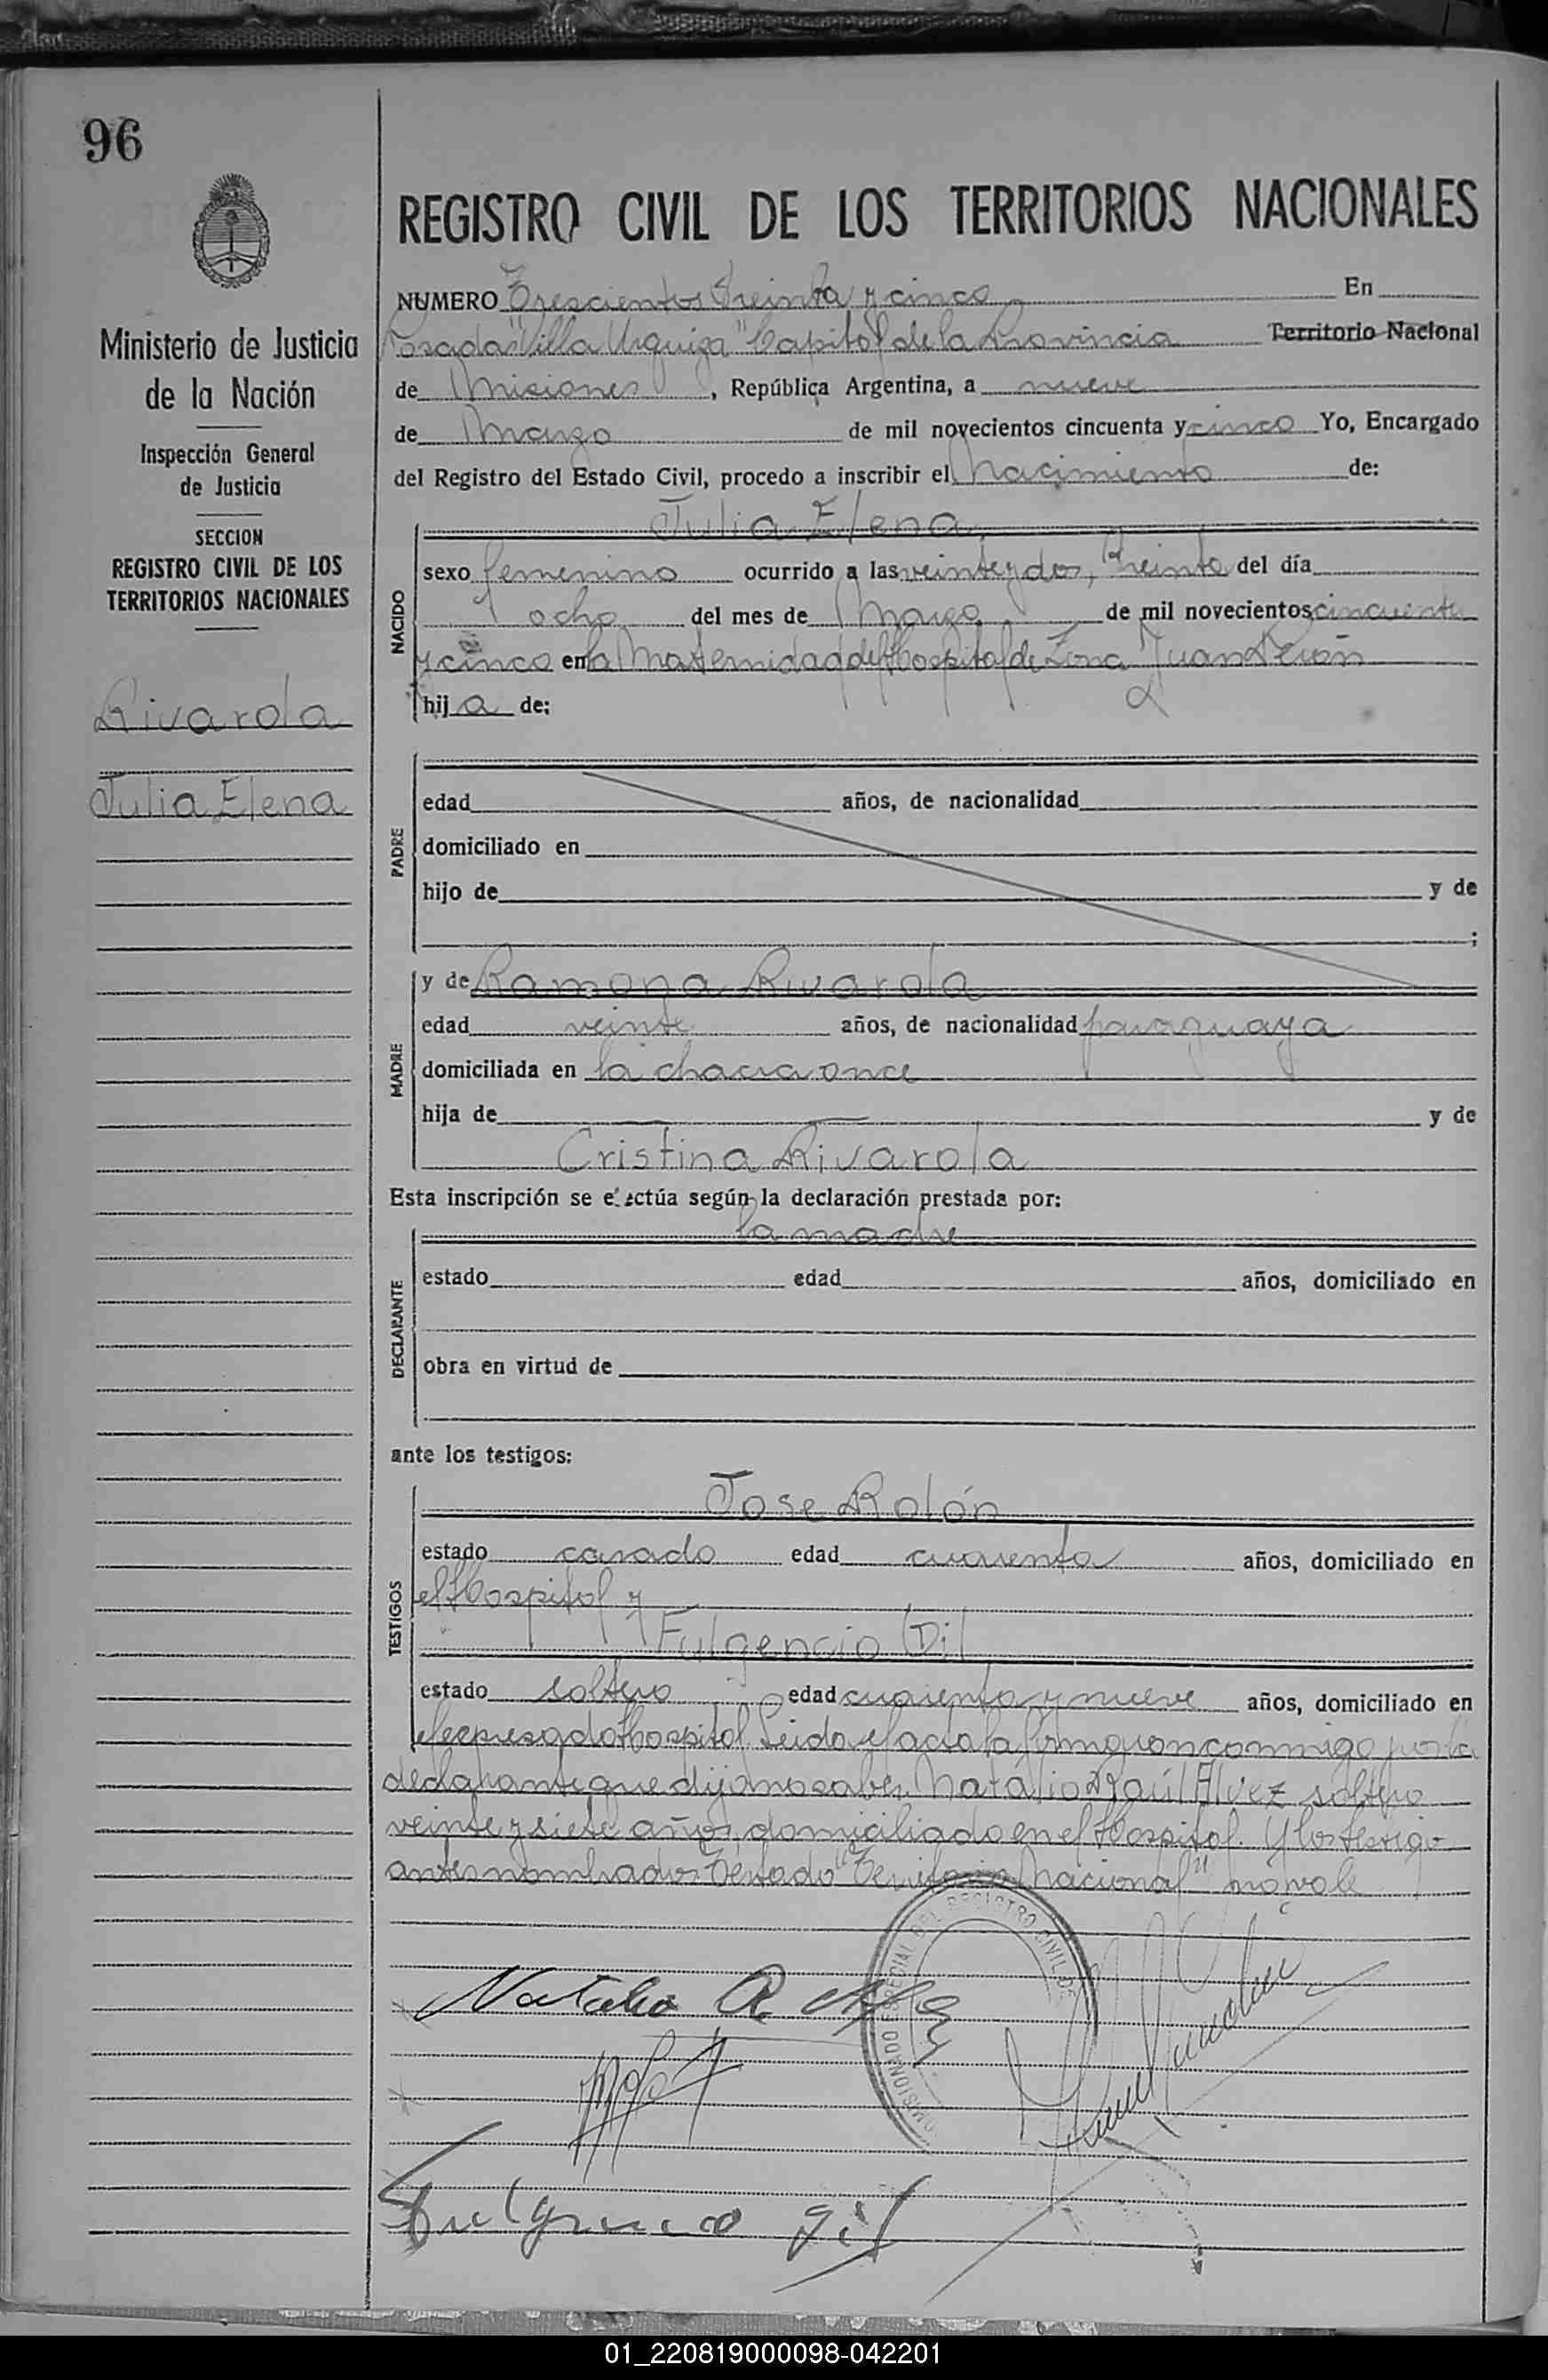 96
REGISTRO CIVIL DE LOS TERRITORIOS NACIONALES
Ministerio de Justicia
de la Nación
Inspección General
de Justicia
SECCION
REGISTRO CIVIL DE LOS
TERRITORIOS NACIONALES
Rivarola
Julia Elena
NUMERO Trescientos Treinta y cinco En
Posadas "Villa Urquiza" Capital de la Provincia Territorio Nacional
de Misiones, República Argentina, a nueve
de Marzo de mil novecientos cincuenta y cinco Yo, Encargado
del Registro del Estado Civil, procedo a inscribir el Nacimiento de:
Julia Elena
NACIDO
sexo femenino ocurrido a las veinte y dos, Treinta del día
ocho del mes de Marzo de mil novecientos cincuenta
y cinco en la Maternidad del Hospital de Zona "Juan Perón
hija de:
PADRE
edad años, de nacionalidad
domiciliado en
hijo de y de
;
MADRE
y de Ramona Rivarola
edad veinte años, de nacionalidad paraguaya
domiciliada en la chacra once
hija de y de
Cristina Rivarola
Esta inscripción se efectúa según la declaración prestada por:
la madre
DECLARANTE
estado edad años, domiciliado en
obra en virtud de
ante los testigos:
TESTIGOS
Jose Rolón
estado casado edad cuarenta años, domiciliado en
el Hospital y
Fulgencio Gil
estado soltero edad cuarenta y nueve años, domiciliado en
el expresado Hospital. Leida el acta la firmaron conmigo por la
declarante que dijo no saber Natálio Raúl Alvez soltero
veinte y siete años, domiciliado en el Hospital. Y los testigo
antes nombrados Testado "Territorio Nacional" no vale
Natalio R.
DEL REGISTRO CIVIL DE
Fulgencio gil
01_220819000098-042201